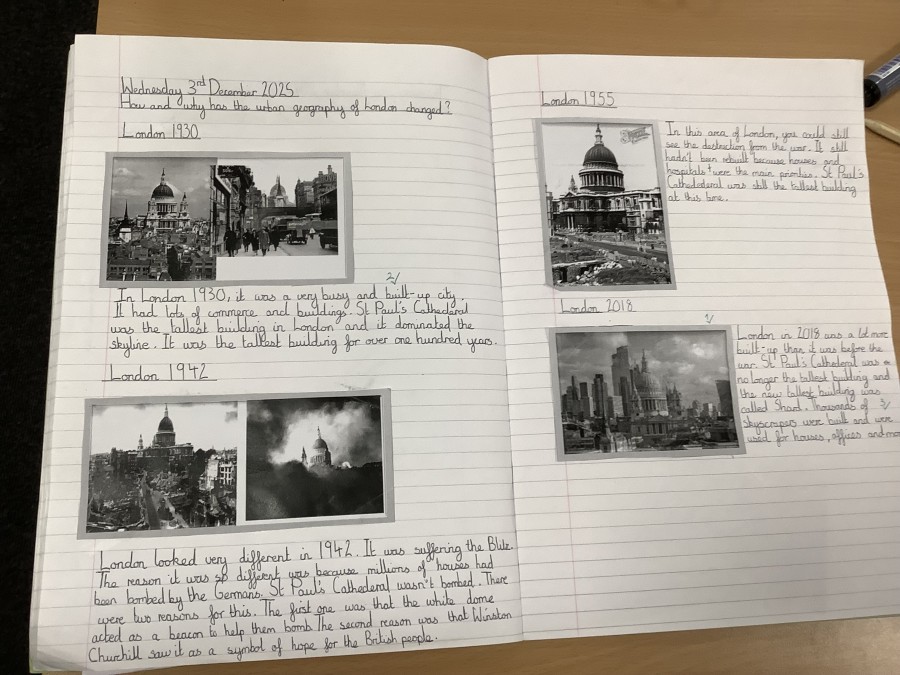 Wednesday 3rd December 2025
How and why has the urban geography of London changed?
London 1930
2/
In London 1930, it was a very busy and built-up city.
It had lots of commerce and buildings. St Paul's Cathederal
was the tallest building in London and it dominated the
skyline. It was the tallest building for over one hundred years.
London 1942
London looked very different in 1942. It was suffering the Blitz.
The reason it was so different was because millions of houses had
been bombed by the Germans. St Paul's Cathederal wasn't bombed. There
were two reasons for this. The first one was that the white dome
acted as a beacon to help them bomb. The second reason was that Winston
Churchill saw it as a symbol of hope for the British people.
London 1955
In this area of London, you could still
see the destruction from the war. It still
hadn't been rebuilt because houses and
hospitals were the main priorities. St Paul's
Cathederal was still the tallest building
at this time.
London 2018
London in 2018 was a lot more
built-up than it was before the
war. St Paul's Cathederal was
no longer the tallest building and
the new tallest building was
called Shard. Thousands of
skyscrapers were built and were
used for houses, offices and mo